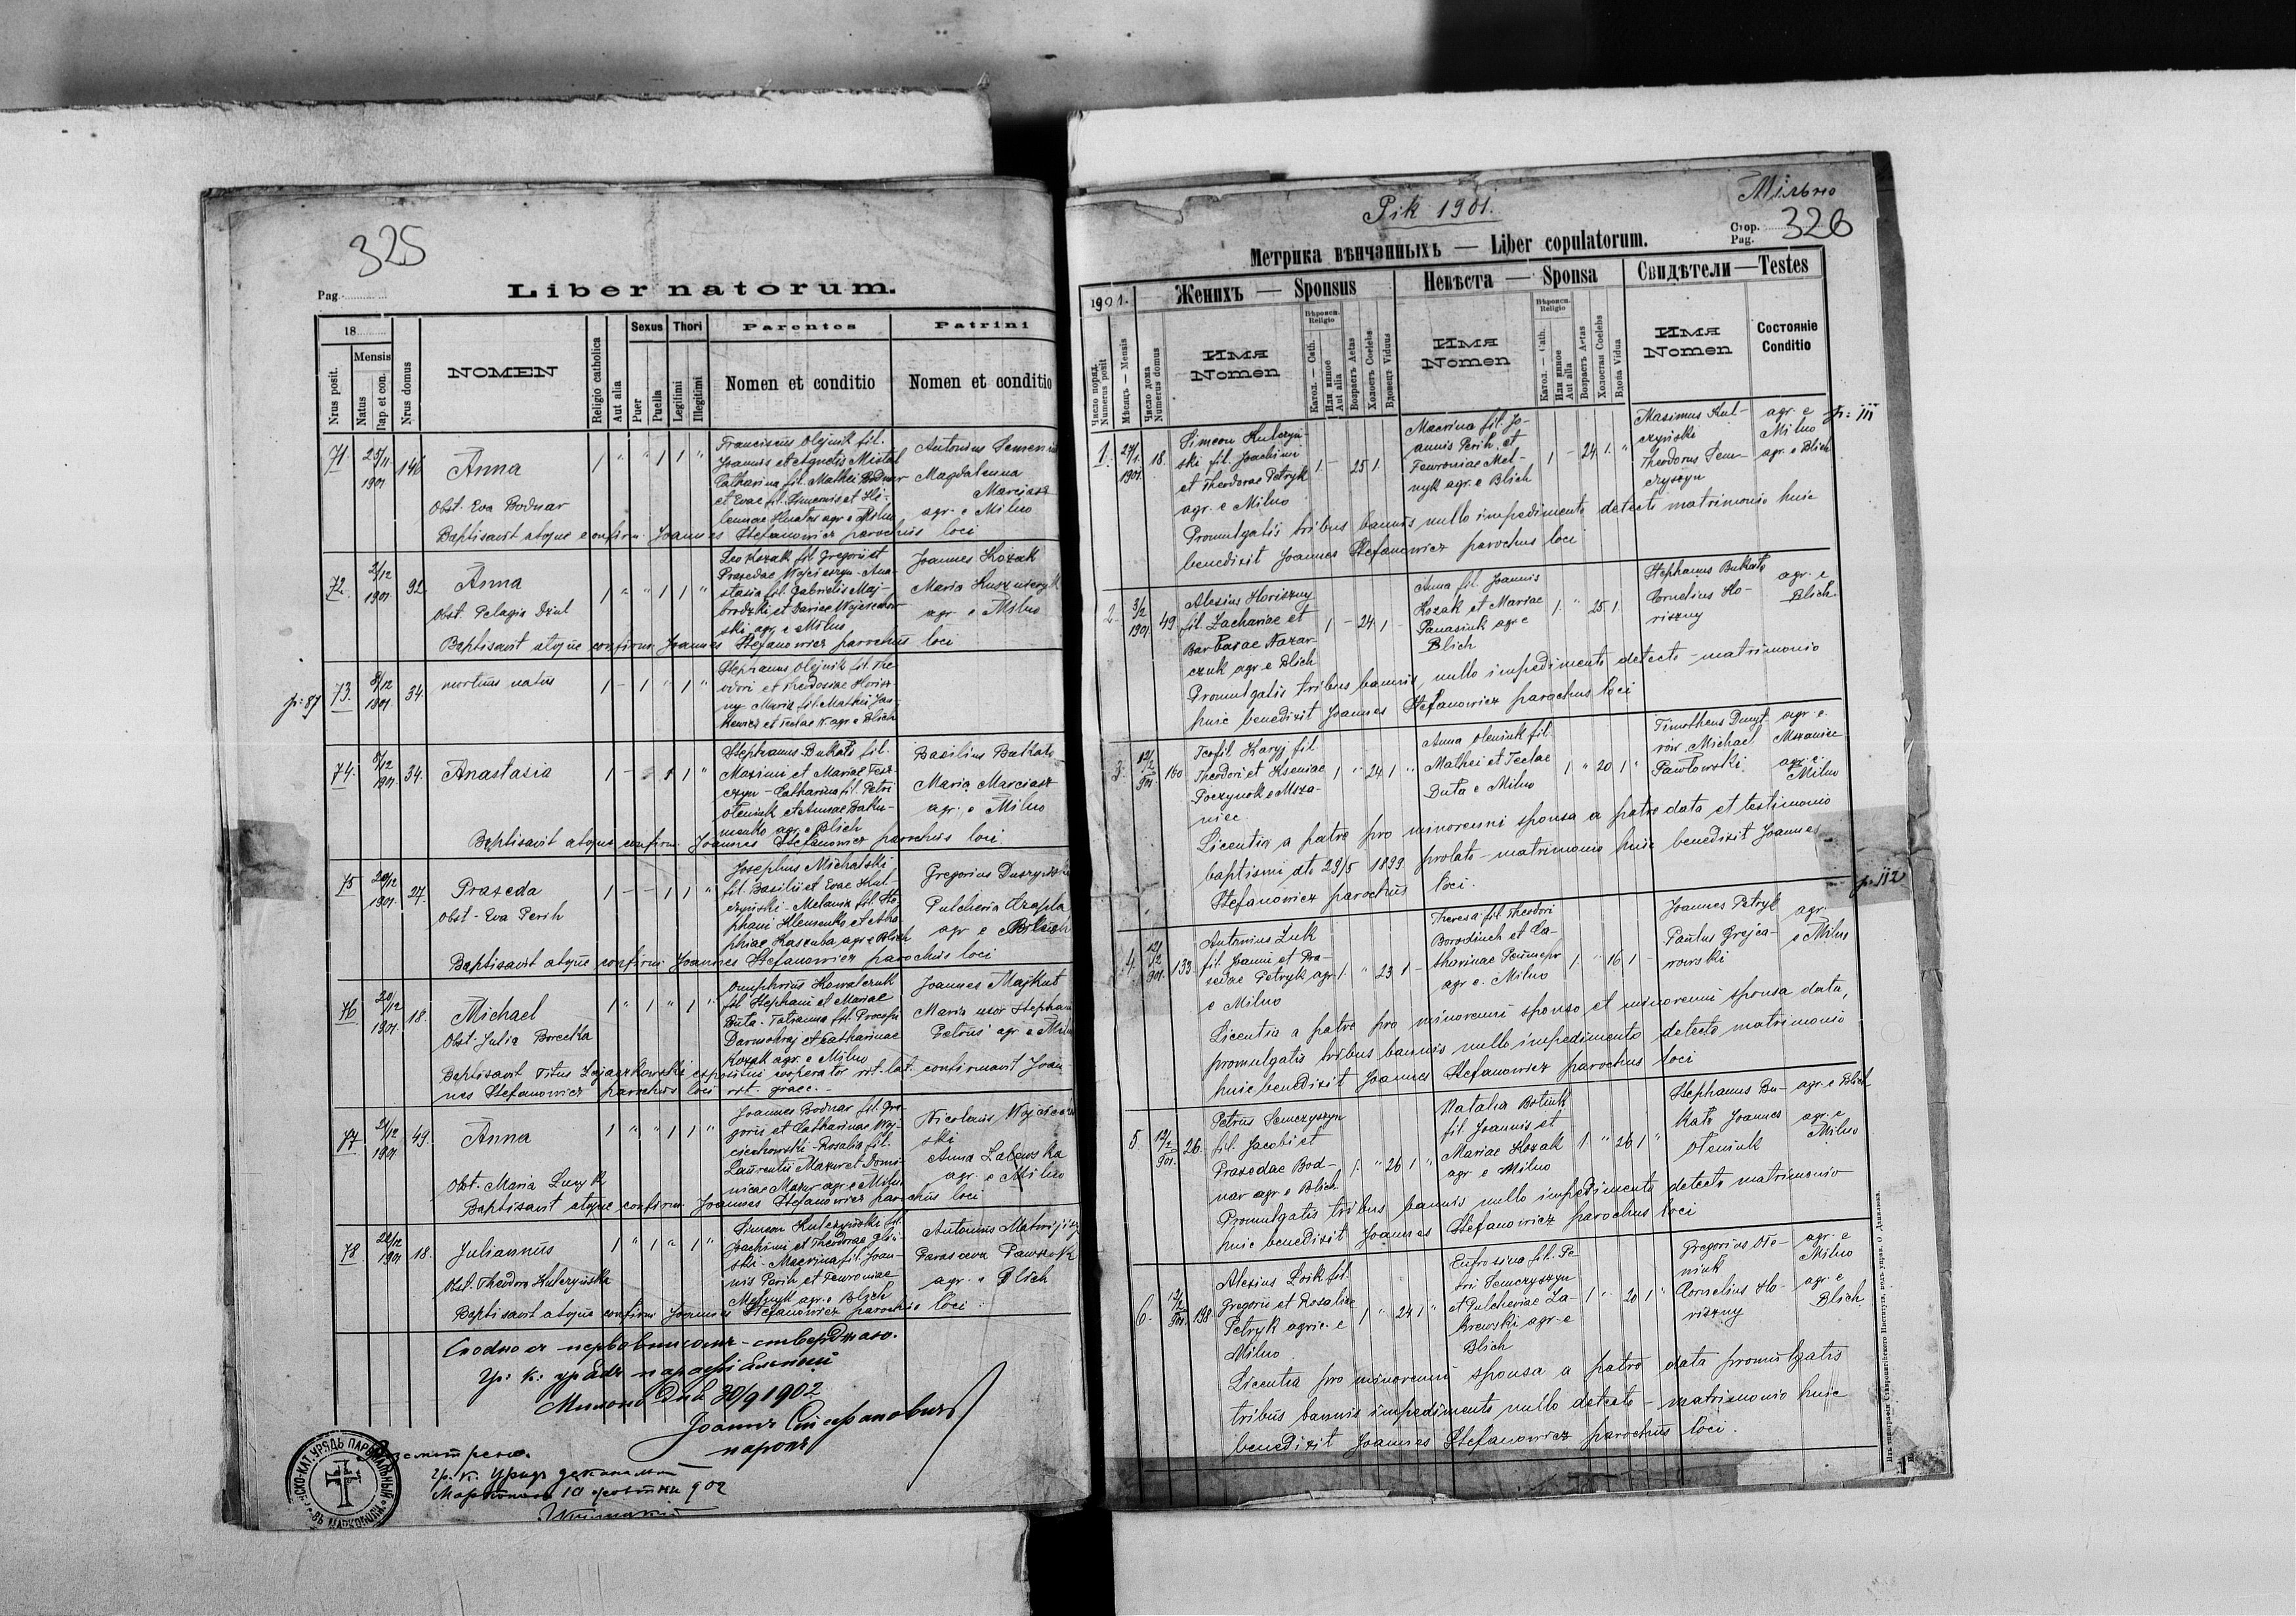 325
Pag.
Liber natorum.
18
Nrus posit.
Mensis
Natus
Bap. et con.
Nrus domus
NOMEN
Religio catholica
Aut alia
Sexus
Puer
Puella
Thori
Legitimi
Illegitimi
Parentes
Nomen et conditio
Patrini
Nomen et conditio
71 25/11 1901 146 Anna
Obst. Eva Bodnar
Franciscus Olejnik fil.
Joannis et Agnetis Mistal
Catharina fil. Mathei Bodnar
et Evae fil. Simeonis et He-
lennae agr. e Milno
Antonius
Magdalenna
Marciasz
agr. e Milno
Baptisavit atque confirm. Joannes Stefanowicz parochus loci
72 2/12 1901 92 Anna
Obst. Pelagia Dziul
Leo Kozak fil. Gregorii et
Praxedae Wojciszyn - Ana-
stasia fil. Gabrielis Maj-
brodzki et Dariae Wojciechow-
ski agr. e Milno
Joannes Kozak
Maria
agr. e Milno
Baptisavit atque confirm. Joannes Stefanowicz parochus loci
p: 87
73. 8/12 1901 34. mortuus natus
Stephanus Olejnik fil. The-
odori et Theodosiae Horisz-
ny - Maria fil. Mathei Jan-
kewicz et Teclae N agr. e Blich
74. 8/12 1901 34. Anastasia
Stephanus Bukato fil.
Maximi et Mariae Tesz-
czyn - Catharina fil. Petri
Oleniuk et Annae Baku-
menko agr. e Blich
Basilius Bukato
Maria Marciasz
agr. e Milno
Baptisavit atque confirm. Joannes Stefanowicz parochus loci
75 20/12 1901 27. Praxeda
Obst - Eva Perih
Josephus Michalski
fil. Basilii et Evae Kul-
czyński - Melania fil. Ste-
phani Klemenko et Aga-
phiae Kaszuba agr. e Blich
Gregorius
Pulcheria Czapla
agr e Blich
Baptisavit atque confirm. Joannes Stefanowicz parochus loci
76 20/12 1901. 18. Michael
Obst. Julia Borecka
Onuphrius Kowalczuk
fil. Stephani et Mariae
Duta. Tatianna fil. Procopii
Darmohraj et Catharinae
Kozak agr. e Milno
Joannes Majkut
Maria uxor Stephani
Petrus agr. e Milno
Baptisavit Titus Zajaczkowski expositus cooperator rit. lat. confirmavit Joan-
nes Stefanowicz parochus loci rit. graec. -
77 21/12 1901 49. Anna
Obst. Maria Lucyk
Joannes Bodnar fil. Gre-
gorii et Catharinae Woj-
ciechowski - Rosalia fil.
Laurentii Mazur et Domi-
nicae Mazur agr. e Milno
Nicolaus Wojciechow-
ski
Anna Zalewska
agr. e Milno
Baptisavit atque confirm. Joannes Stefanowicz parochus loci
78 28/12 1901 18. Juliannus
Obst. Theodora Kulczyńska
Simeon Kulczyński fil.
Joachimi et Theodorae
ski - Macrina fil. Joan-
nis Perih et Fewroniae
Melnyk agr. e Blich
Antonius
Parascewa Pawszok
agr. e Blich
Baptisavit atque confirm. Joannes Stefanowicz parochus loci
Сходно зъ первописомъ - стверджаю.
Гр: к: урядъ парафіяльный
Мильно дня 30/9 1902
Іоаннъ Стефановичъ
парохъ
гр. к. Урядъ деканальный
Маркополь 10 902
Мільно
Рік 1901.
Стор.
Pag.
326
Метрика вѣнчанныхъ — Liber copulatorum.
1901.
Число поряд.
Numerus posit
Мѣсяць — Mensis
Число дома
Numerus domus
Женихъ — Sponsus
Имя
Nomen
Вѣроисп.
Religio
Катол. — Cath.
Или иное
Aut alia
Возрастъ Aetas
Холостъ Coelebs
Вдовецъ Viduus
Невѣста — Sponsa
Имя
Nomen
Вѣроисп.
Religio
Катол. — Cath.
Или иное
Aut alia
Возрастъ Aetas
Холостая Coelebs
Вдова Vidua
Свидѣтели — Testes
Имя
Nomen
Состояніе
Conditio
p: 111
1. 27/1 1901 18. Simeon Kulczyń-
ski fil. Joachimi
et Theodorae Petryk
agr. e Milno
1 - 25 1
Macrina fil. Jo-
annis Perih et
Fewroniae Mel-
nyk agr. e Blich
1 - 24 1 "
Maximus Kul-
czyński
Theodorus Sem-
czyszyn
agr. e
Milno
agr. e Blich
Promulgatis tribus bannis nullo impedimento detecto matrimonio huic
benedixit Joannes Stefanowicz parochus loci
2. 3/2 1901 49 Alexius Horiszny
fil. Zachariae et
Barbarae Nazar-
czuk agr. e Blich
1 - 24 1 -
Anna fil. Joannis
Kozak et Mariae
Panasiuk agr e
Blich
1 " 25 1.
Stephanus Bukato
Cornelius Ho-
riszny
agr. e
Blich.
Promulgatis tribus bannis, nullo impedimento detecto - matrimonio
huic benedixit Joannes Stefanowicz parochus loci
3. 12/2 901 160 Teofil Karyj fil.
Theodori et Kseniae
Poczynok e Msza-
niec
1 " 24 1 "
Anna Oleniuk fil.
Mathei et Teclae
Duta e Milno
1 " 20 1 "
Timotheus Dmyt-
rów Michael
Pawłowski
agr. e.
Mszaniec
agr. e.
Milno
Licentia a patre pro minorenni sponsa a patre data et testimonio
baptismi dto 29/5 1899 prolato - matrimonio huic benedixit Joannes
Stefanowicz parochus loci.
p. 112
4. 12/2 901. 133. Antonius Łuk
fil. Joanni et Pra-
xedae Petryk agr.
e Milno
1. " 23 1 -
Theresa fil. Theodori
Borodiuch et Ca-
tharinae
agr e. Milno
1 " 16 1 -
Joannes Petryk
Paulus Grejca-
rowski
agr.
e Milno
Licentia a patre pro minorenni sponso et minorenni sponsa data,
promulgatis tribus bannis nullo impedimento detecto matrimonio
huic benedixit Joannes Stefanowicz parochus loci
5. 12/2 901. 26. Petrus Semczyszyn
fil. Jacobi et
Praxedae Bod-
nar agr. e Blich
1. " 26 1 "
Natalia Botiuk
fil. Joannis et
Mariae Kozak
agr. e Milno
1. " 26 1 "
Stephanus Bu-
kato Joannes
Oleniuk
agr. e Blich
agr. e
Milno
Promulgatis tribus bannis nullo impedimento detecto matrimonio
huic benedixit Joannes Stefanowicz parochus loci
6. 12/2 901. 198 Alexius Loik fil.
Gregorii et Rosaliae
Petryk agric. e
Milno
1 " 24 1 "
Eufrosina fil. Pe-
tri Semczyszyn
et Pulcheriae Za-
krewski agr. e
Blich
1 " 20 1 "
Gregorius Ole-
niuk
Cornelius Ho-
riszny
agr. e
Milno
agr. e
Blich.
Licentia pro minorenni sponsa a patre data promulgatis
tribus bannis impedimento nullo detecto - matrimonio huic
benedixit Joannes Stefanowicz parochus loci.